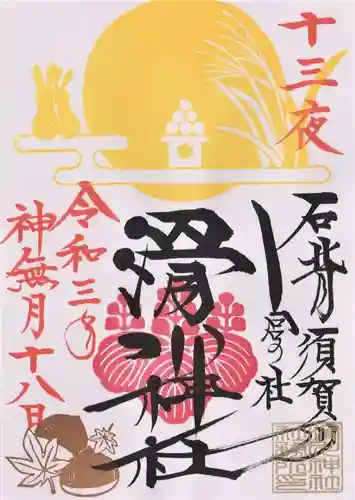 十三夜
石背須賀川
社
滑川神社
令和三年
神無月十八日